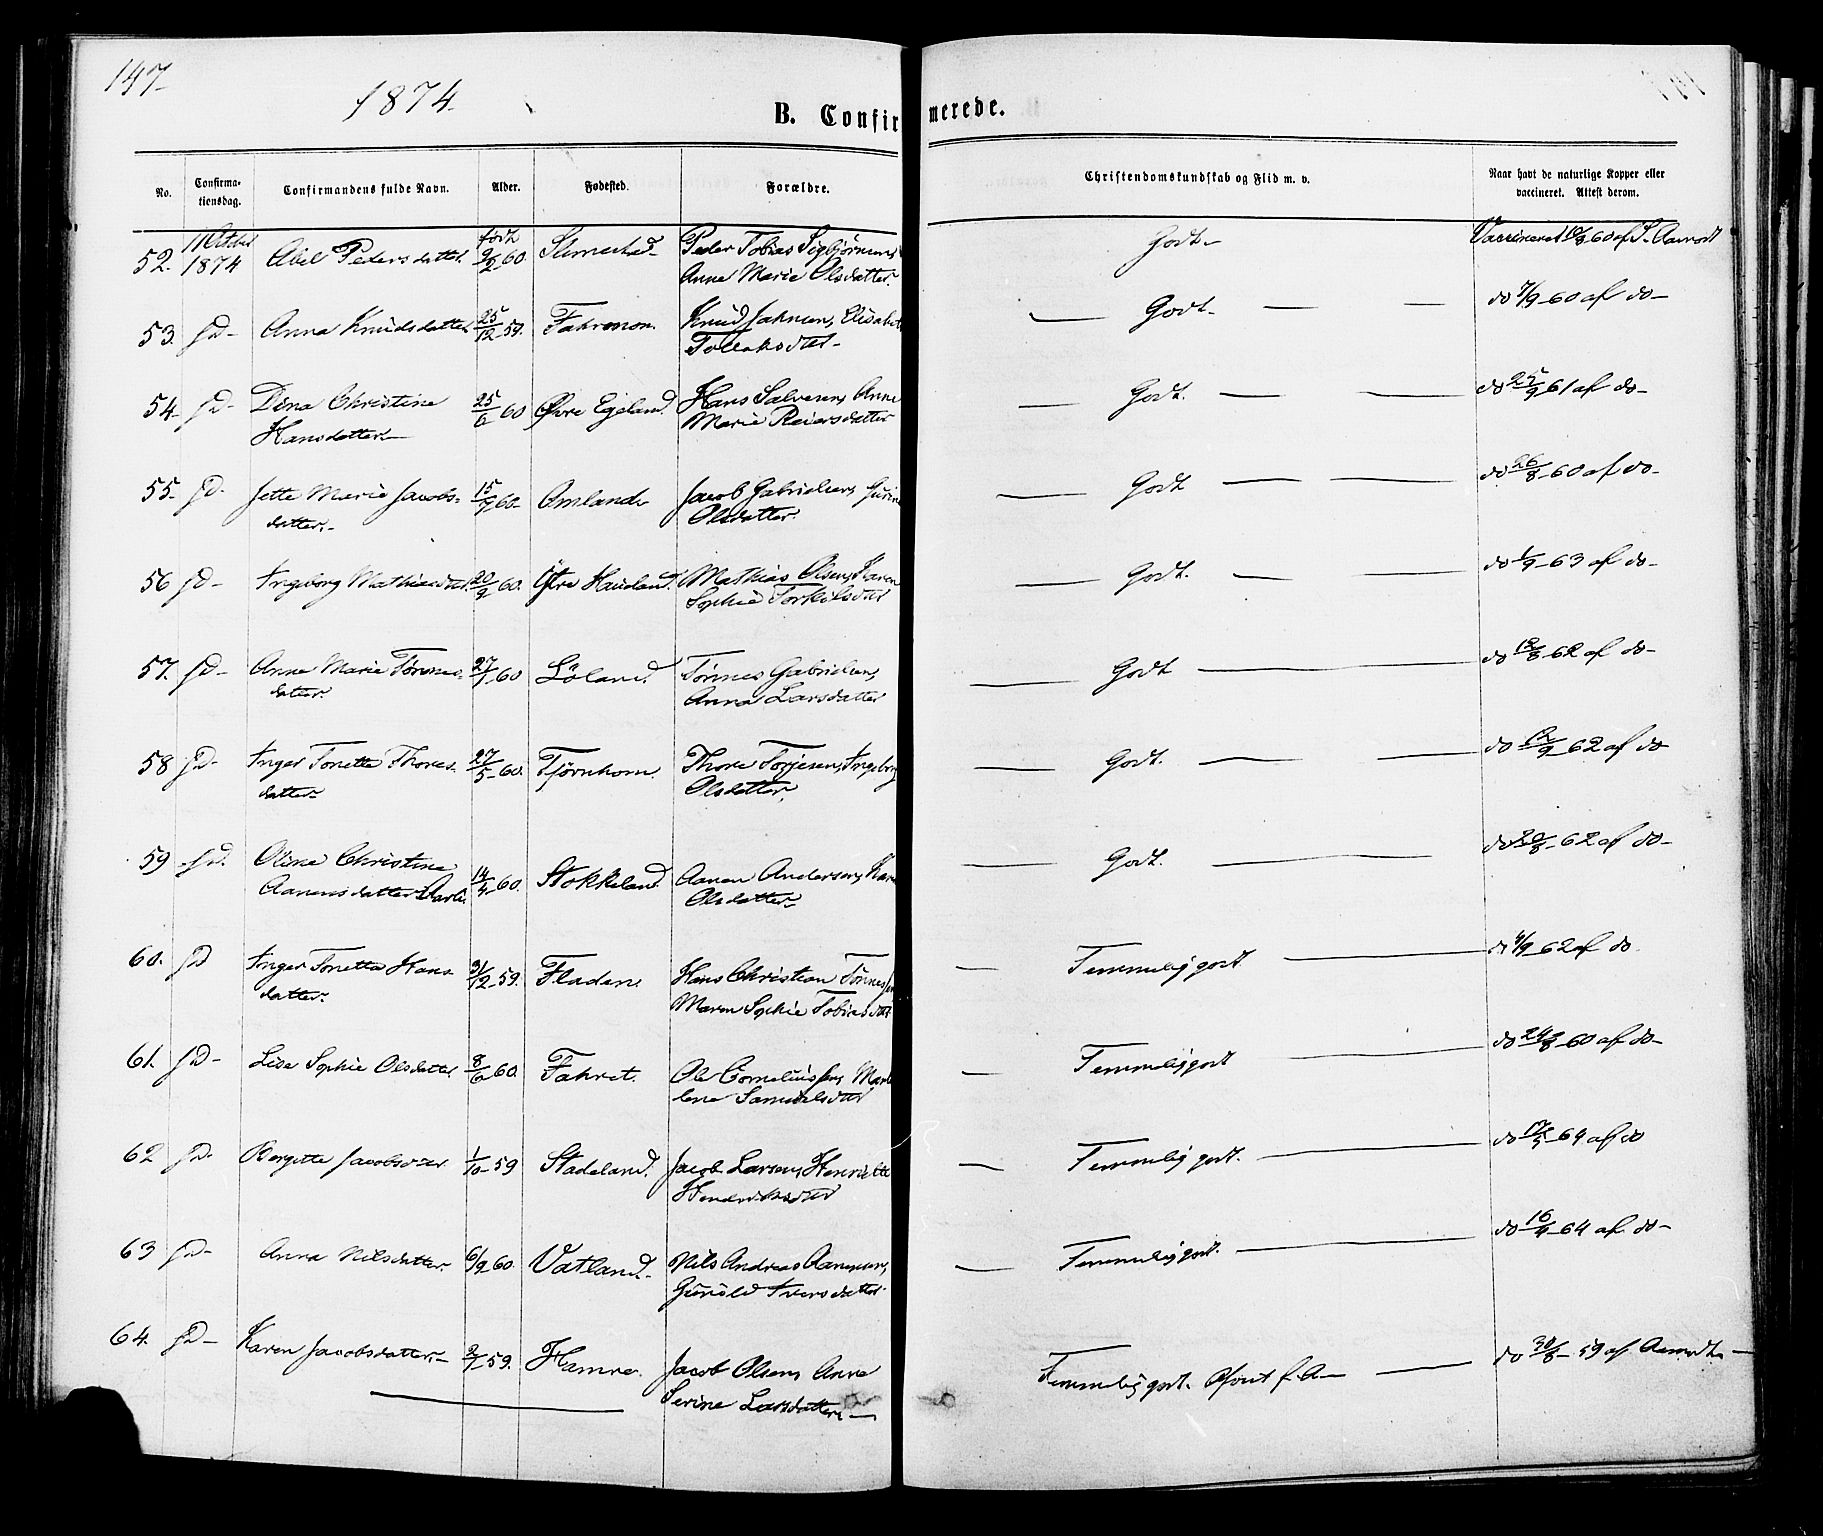 147-
1874.
B. Confirmerede.
No. Confirma-tionsdag. Confirmandens fulde Navn. Alder. Fødested. Forældre. Christendomskundskab og Flid m. v. Naar havt de naturlige Kopper eller vaccineret. Attest derom.
52. 11 October 1874 Abel Pedersdatter født 60. Peder Tobias Anne Marie Olsdatter. Godt- Vaccineret 60 af
53. Sd- Anna Knudsdatter 25/12-59. Knud Elisabet Godt. do 7/9-60 af do-
54- Sd- Dina Christine Hansdatter- 25/6 60 Øvre Egeland. Hans Salvesen, Anne Marie Reiersdatter Godt. do 25/9 61 af do-
55- Sd- Jette Marie Jacobs-datter.- 15/7 60- Omland- Jacob Gabrielsen, Gurine Olsdatter. Godt do 26/8-60 af do-
56 Sd- Ingeborg Mathiasdtr. 20/9 60. Øvre Haugland. Mathias Olsen, Karen Sophie Torkilsdtr Godt. do 1/9-63 af do-
57. Sd- Anne Marie Tønnes-datter. 27/1 60 Löland. Tønnes Gabrielsen, Anna Larsdatter Godt do 62 af do-
58 Sd- Inger Tonette Thores-datter- 27/5-60. Tjørnhom. Thore Torjesen, Ingeborg Olsdatter. Godt. do 62 af do
59 Sd. Oline Christine Aanensdatter 14/4-60. Stokkeland. Aanen Andersen, Olsdatter- Godt. do 20/8-62 af do-
60. Sd Inger Tonette Hans-datter. 31/12-59. Fladen. Hans Christian Tønnessen Maren Sophie Tobiasdtr Temmelig godt do 4/9 62 af do.
61. Sd- Lise Sophie Olsdatter 8/6 60. Ole Corneliussen, Samuelsdtr Temmelig godt do 24/8-60 af do-
62 Sd- Bergitte Jacobsdtr. 1/10-59 Stadeland. Jacob Larsen, Henriette Hendriksdtr Temmelig godt. do af do
63 Sd- Anna Nilsdatter. 6/9 60. Vatland- Nils Andreas Aanensen, Gunild Iversdatter. Temmelig godt. do 64 af do-
64. Sd- Karen Jacobsdatter.- 2/7 59. Hamre. Jacob Olsen, Anne Serine Larsdatter.- Temmelig godt. do 30/8-59 af